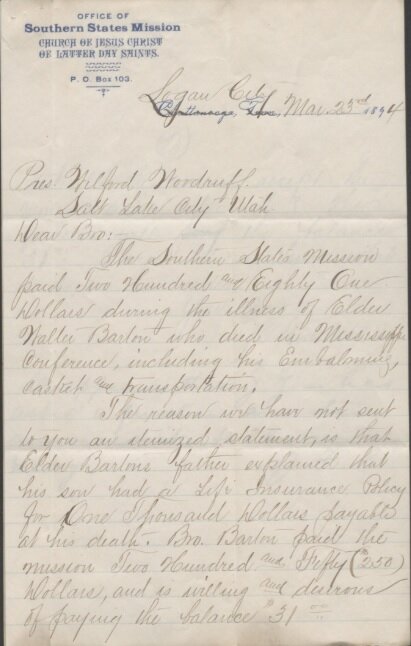 OFFICE OF
Southern States Mission
CHURCH OF JESUS CHRIST
OF LATTER DAY SAINTS.
P. O. BOX 103.
Logan City
Chattanooga, Tenn., Mar. 23rd 1894
Pres. Wilford Woodruff.
Salt Lake City Utah
Dear Bro:—
The Southern States Mission
paid Two Hundred and Eighty One
Dollars during the illness of Elder
Walter Barton who died in Mississippi
Conference, including his Embalming,
Casket and transportation.
The reason we have not sent
to you an itemized statement, is that
Elder Bartons father explained that
his son had a Life Insurance Policy
for One Thousand Dollars payable
at his death. Bro. Barton paid the
mission Two Hundred and Fifty ($250)
Dollars, and is willing and desirous
of paying the balance $31 00